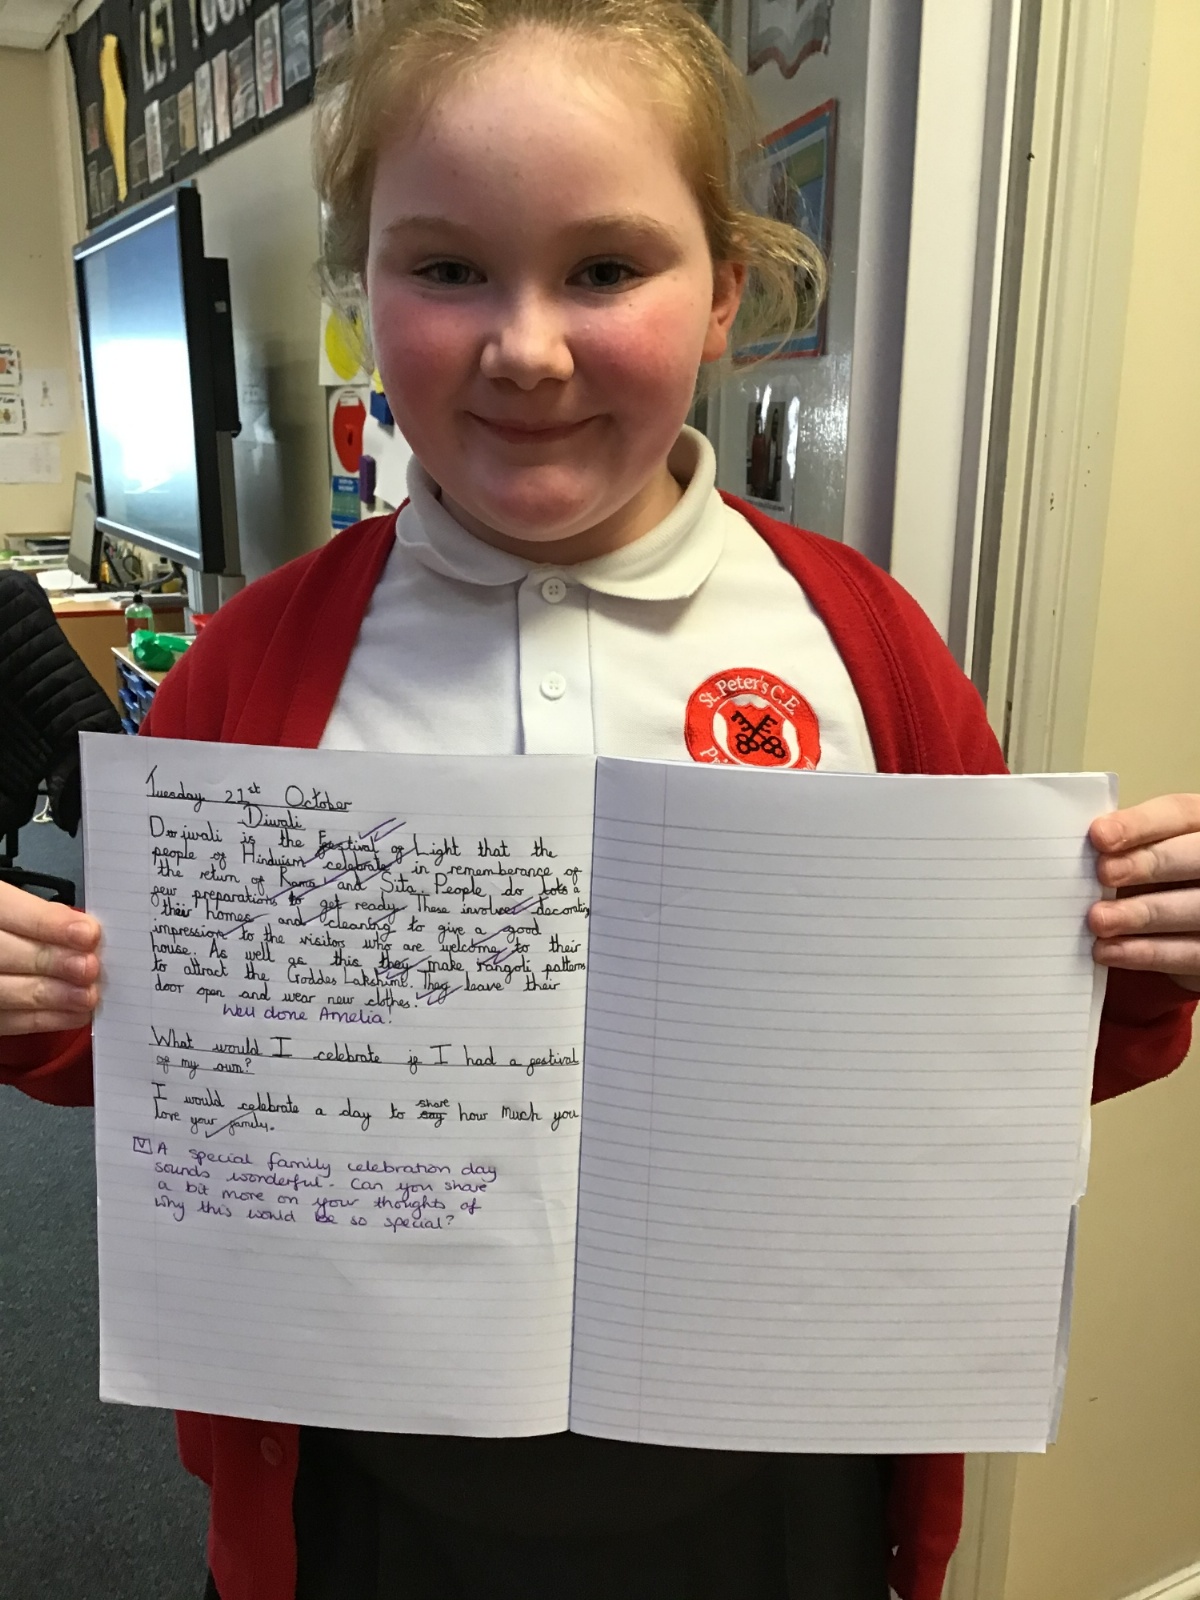 LET YOUR
St. Peter's C.E.
Tuesday 21st October
Diwali
Diwali is the Festival of Light that the
people of Hinduism celebrate in rememberance of
the return of Rama and Sita. People do lots a
few preparations to get ready. These involves decorating
their homes and cleaning to give a good
impression to the visitors who are welcome to their
house. As well as this they make rangoli patterns
to attract the Goddes Lakshimi. They leave their
door open and wear new clothes.
Well done Amelia!
What would I celebrate if I had a festival
of my own?
I would celebrate a day to say share how much you
love your family.
V A special family celebration day
sounds wonderful. Can you share
a bit more on your thoughts of
why this would be so special?